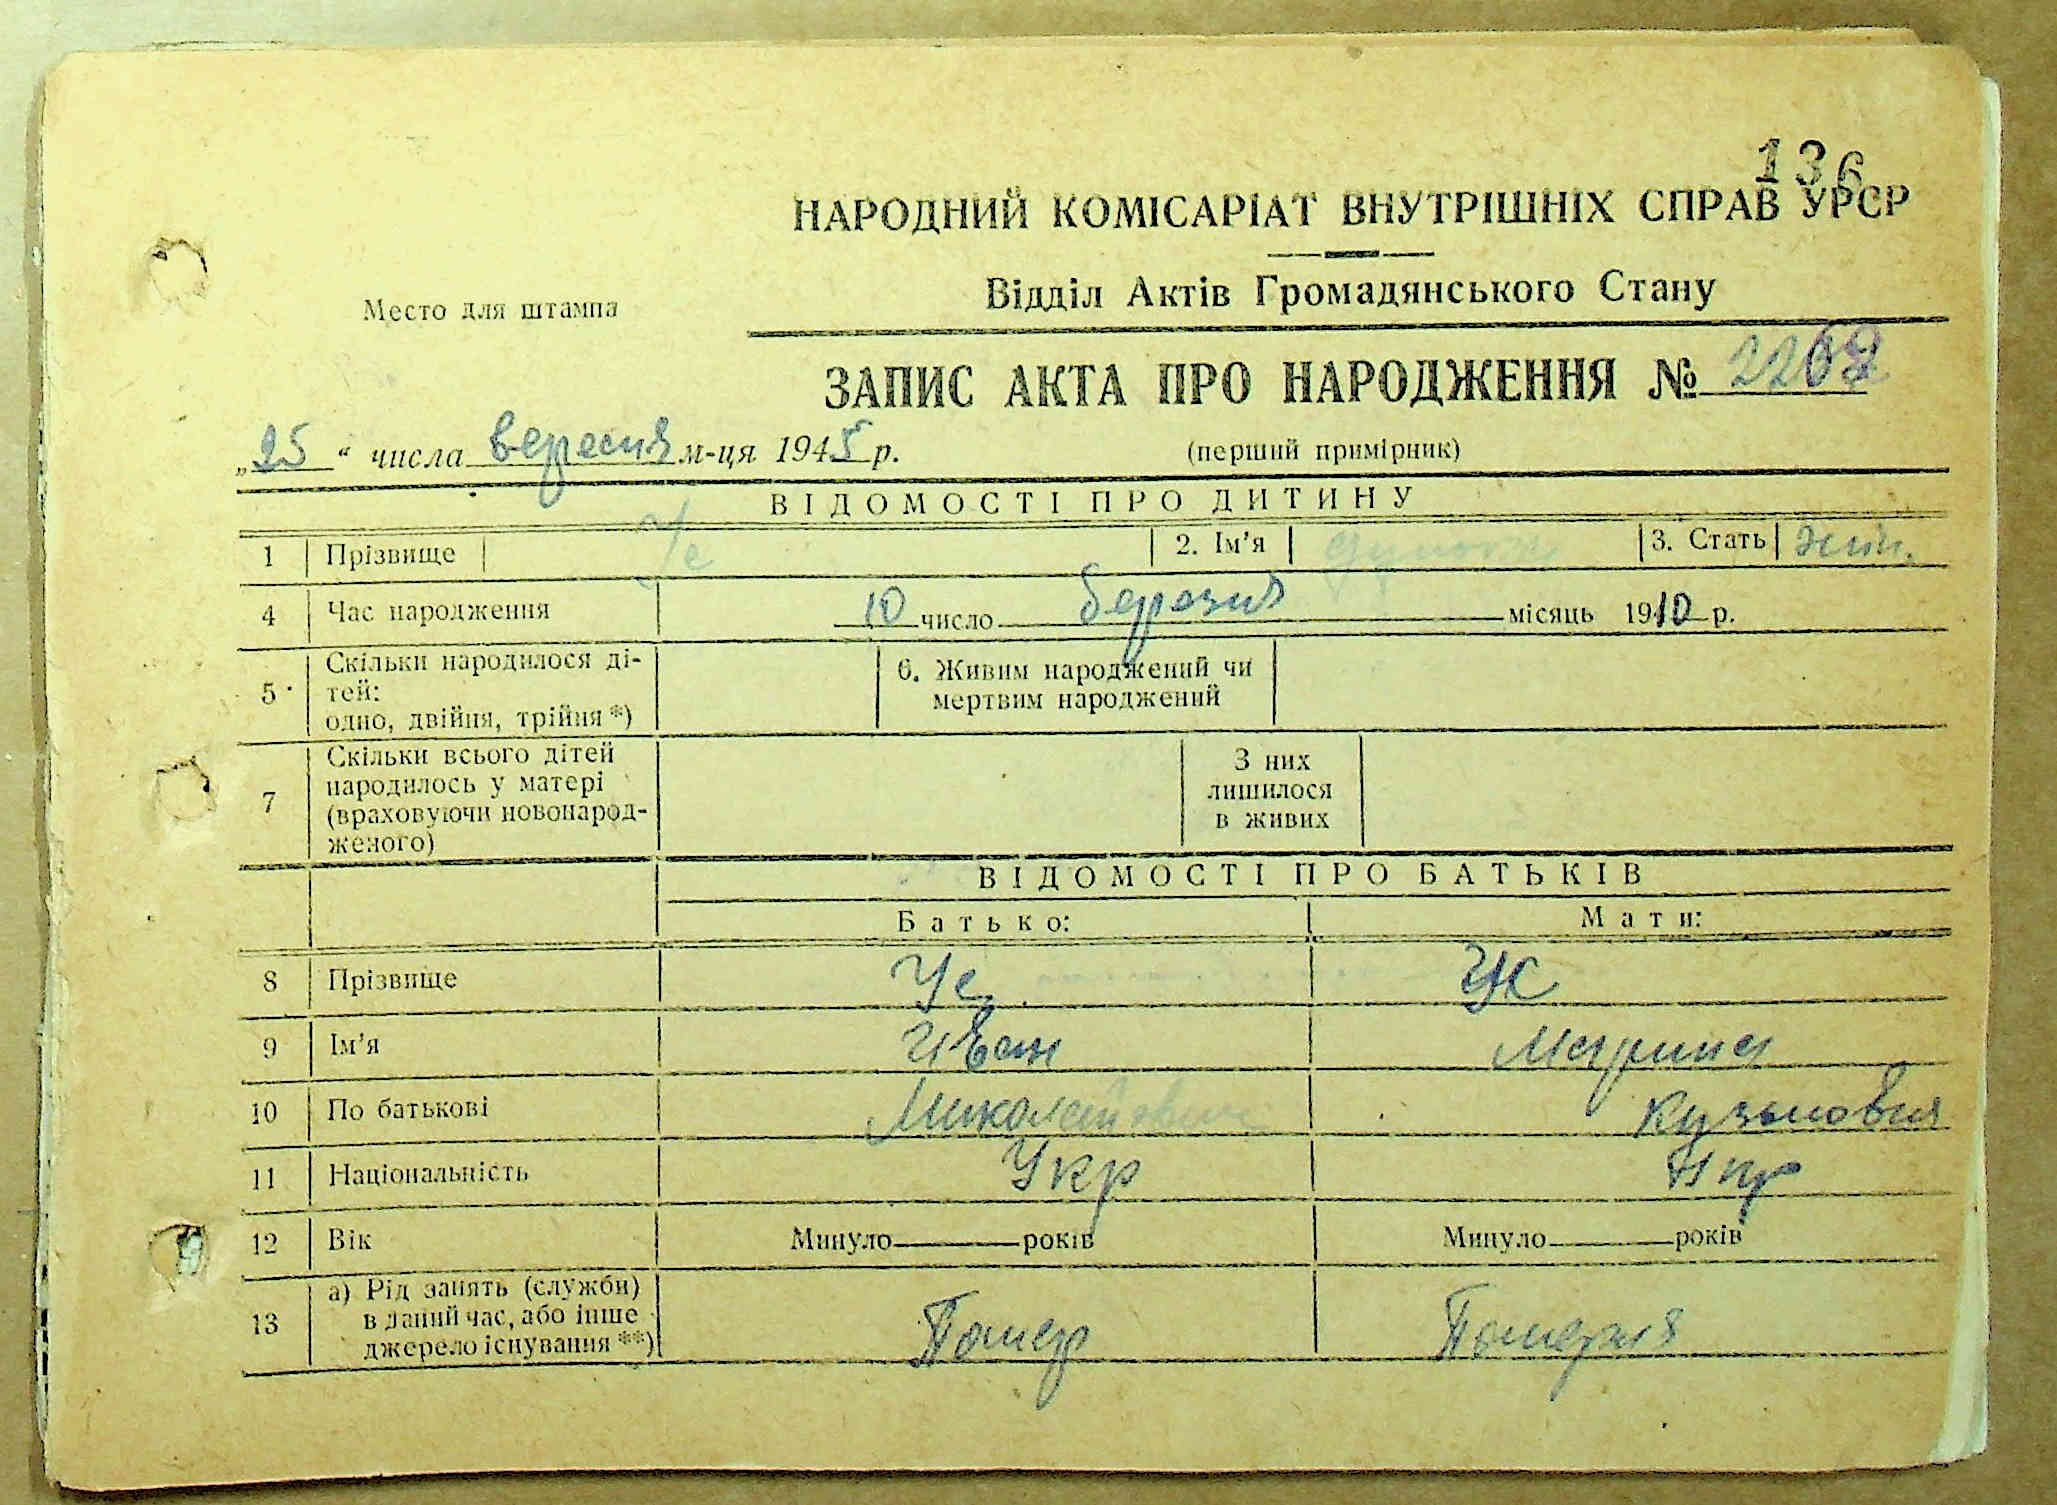 136
НАРОДНИЙ КОМІСАРІАТ ВНУТРІШНІХ СПРАВ УРСР
Відділ Актів Громадянського Стану
Место для штампа
ЗАПИС АКТА ПРО НАРОДЖЕННЯ №
„25“ числа вересня м-ця 1945 р. (перший примірник)
ВІДОМОСТІ ПРО ДИТИНУ
1 Прізвище Ус 2. Ім’я 3. Стать жін.
4 Час народження 10 число березня місяць 1910 р.
5 Скільки народилося ді-
тей:
одно, двійня, трійня *)
6. Живим народжений чи
мертвим народжений
7 Скільки всього дітей
народилось у матері
(враховуючи новонарод-
женого)
З них
лишилося
в живих
ВІДОМОСТІ ПРО БАТЬКІВ
Батько: Мати:
8 Прізвище Ус Ус
9 Ім’я Иван Марина
10 По батькові Миколайович Кузьмовна
11 Національність Укр Укр
12 Вік Минуло років Минуло років
13 а) Рід занять (служби)
в даний час, або інше
джерело існування **)
Помер Померла